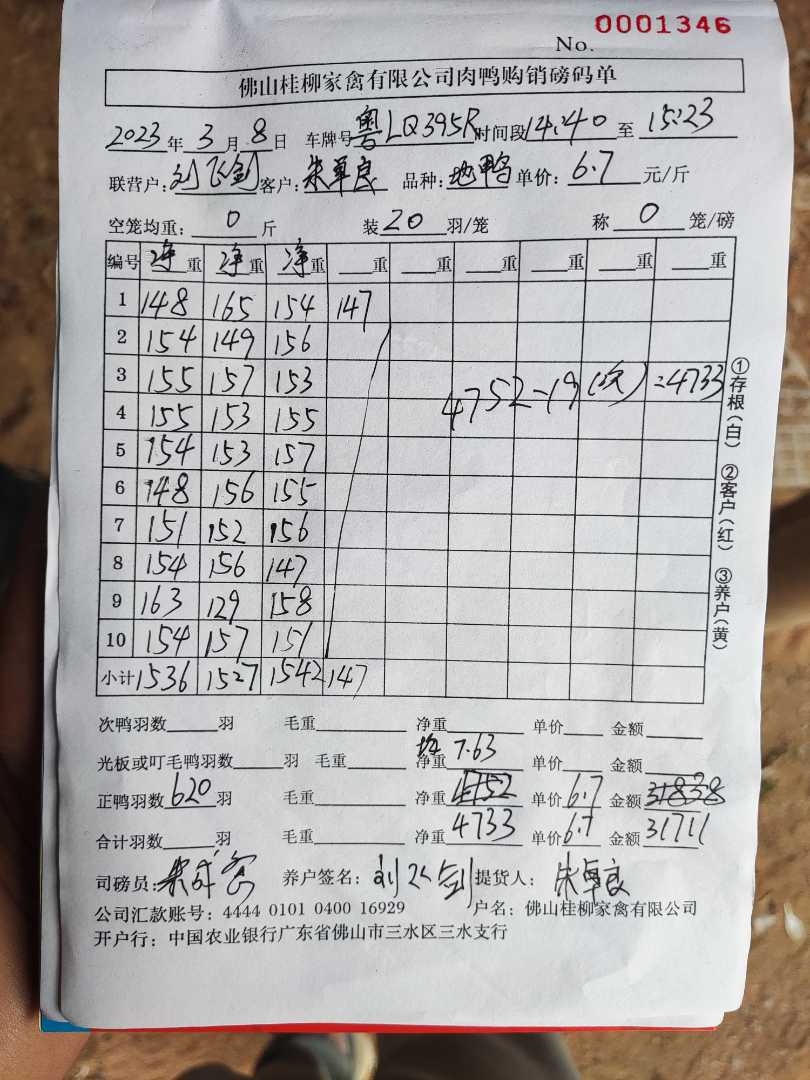 No. 0001346
佛山桂柳家禽有限公司肉鸭购销磅码单
2023年3月8日 车牌号粤LQ395R时间段14:40至15:23
联营户:刘飞剑客户:朱卓良 品种:地鸭单价:6.7元/斤
空笼均重:0斤 装20羽/笼 称0笼/磅
编号 净重 净重 净重 重 重 重 重 重 重
1 148 165 154 147
2 154 149 156
3 155 157 153 4752-19(次)=4733
4 155 153 155
5 154 153 157
6 148 156 155
7 151 152 156
8 154 156 147
9 163 129 158
10 154 157 151
小计 1536 1527 1542 147
①存根(白) ②客户(红) ③养户(黄)
次鸭羽数 羽 毛重 净重 单价 金额
光板或叮毛鸭羽数 羽 毛重 净重 均7.63 单价 金额
正鸭羽数620羽 毛重 净重4752 单价6.7 金额31838
合计羽数 羽 毛重 净重4733 单价6.7 金额31711
司磅员: 养户签名:刘飞剑 提货人:朱卓良
公司汇款账号:4444 0101 0400 16929 户名:佛山桂柳家禽有限公司
开户行:中国农业银行广东省佛山市三水区三水支行